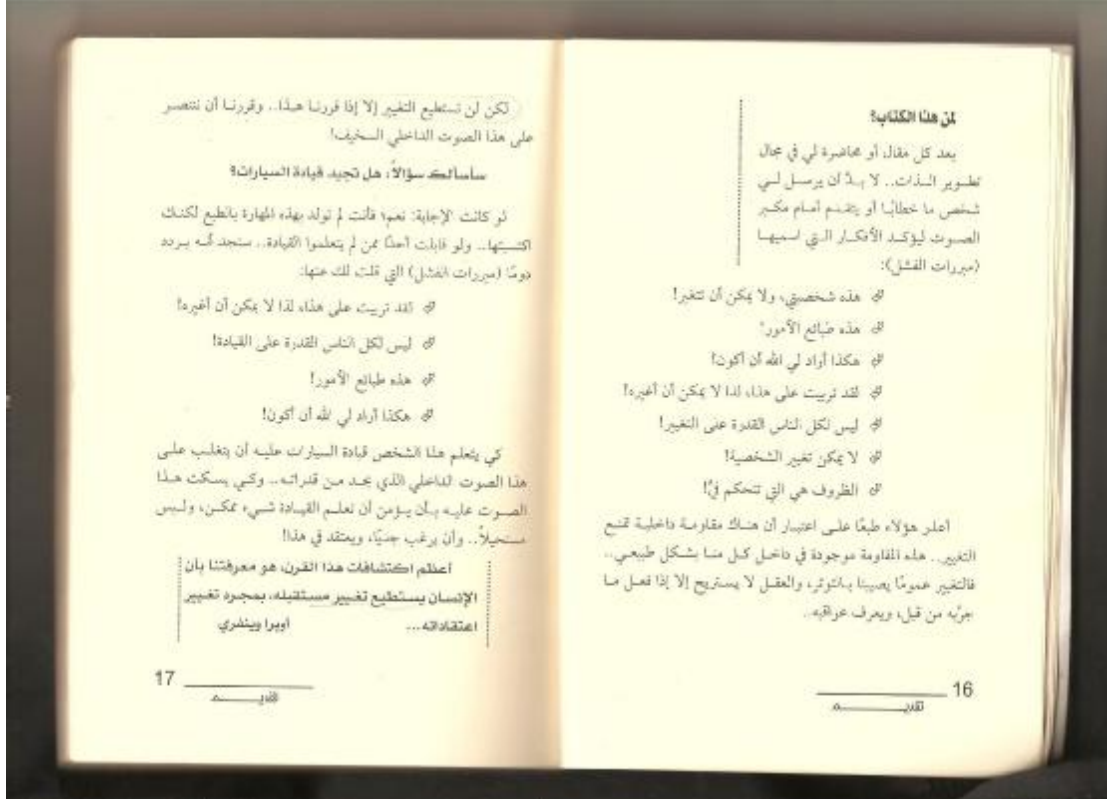 لمن هذا الكتاب؟
بعد كل مقال أو محاضرة لي في مجال
تطوير الذات.. لا بدَّ أن يرسل لي
شخص ما خطابًا أو يتقدم أمام مكبر
الصوت ليؤكد الأفكار التي اسميها
(مبررات الفشل):
هذه شخصيتي، ولا يمكن أن تتغير!
هذه طبائع الأمور!
هكذا أراد لي الله أن أكون!
لقد تربيت على هذا، لذا لا يمكن أن أغيره!
ليس لكل الناس القدرة على التغيير!
لا يمكن تغير الشخصية!
الظروف هي التي تتحكم فيَّ!
أعذر هؤلاء طبعًا على اعتبار أن هناك مقاومة داخلية تمنع
التغيير.. هذه المقاومة موجودة في داخل كل منا بشكل طبيعي..
فالتغيير عمومًا يصيبنا بالتوتر، والعقل لا يستريح إلا إذا فعل ما
جرَّبه من قبل، ويعرف عواقبه..
16
تقديـــم
لكن لن نستطيع التغيير إلا إذا قررنا هذا.. وقررنا أن ننتصر
على هذا الصوت الداخلي السخيف!
سأسألك سؤالاً: هل تجيد قيادة السيارات؟
لو كانت الإجابة: نعم؛ فأنت لم تولد بهذه المهارة بالطبع لكنك
اكتسبتها.. ولو قابلت أحدًا ممن لم يتعلموا القيادة.. ستجد أنه يردد
دومًا (مبررات الفشل) التي قلت لك عنها:
لقد تربيت على هذا، لذا لا يمكن أن أغيره!
ليس لكل الناس القدرة على القيادة!
هذه طبائع الأمور!
هكذا أراد لي الله أن أكون!
كي يتعلم هذا الشخص قيادة السيارات عليه أن يتغلب على
هذا الصوت الداخلي الذي يحد من قدراته.. وكي يسكت هذا
الصوت عليه بأن يؤمن أن تعلم القيادة شيء ممكن، وليس
مستحيلاً.. وأن يرغب جديًا، ويعتقد في هذا!
أعظم اكتشافات هذا القرن، هو معرفتنا بأن
الإنسان يستطيع تغيير مستقبله، بمجرد تغيير
اعتقاداته... أوبرا وينفري
17
تقديـــم